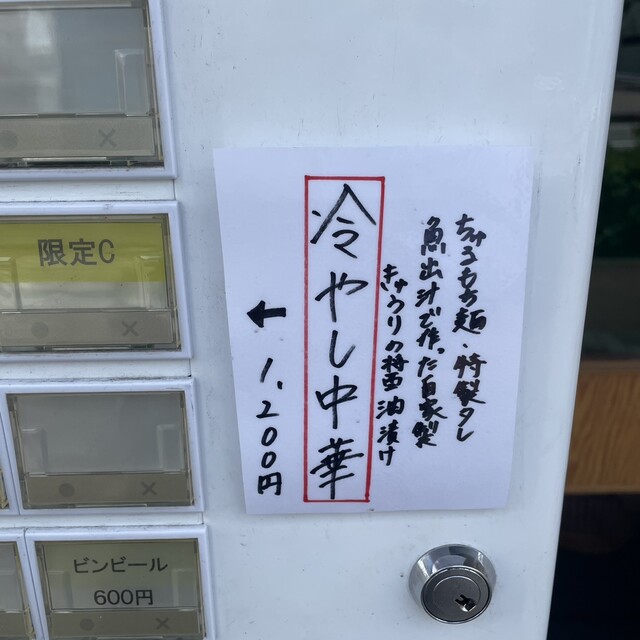 限定C
ビンビール
600円
ちゅるもち麺・特製タレ
魚出汁で作った自家製
きゅうりの醤油漬け
冷やし中華
← 1,200円